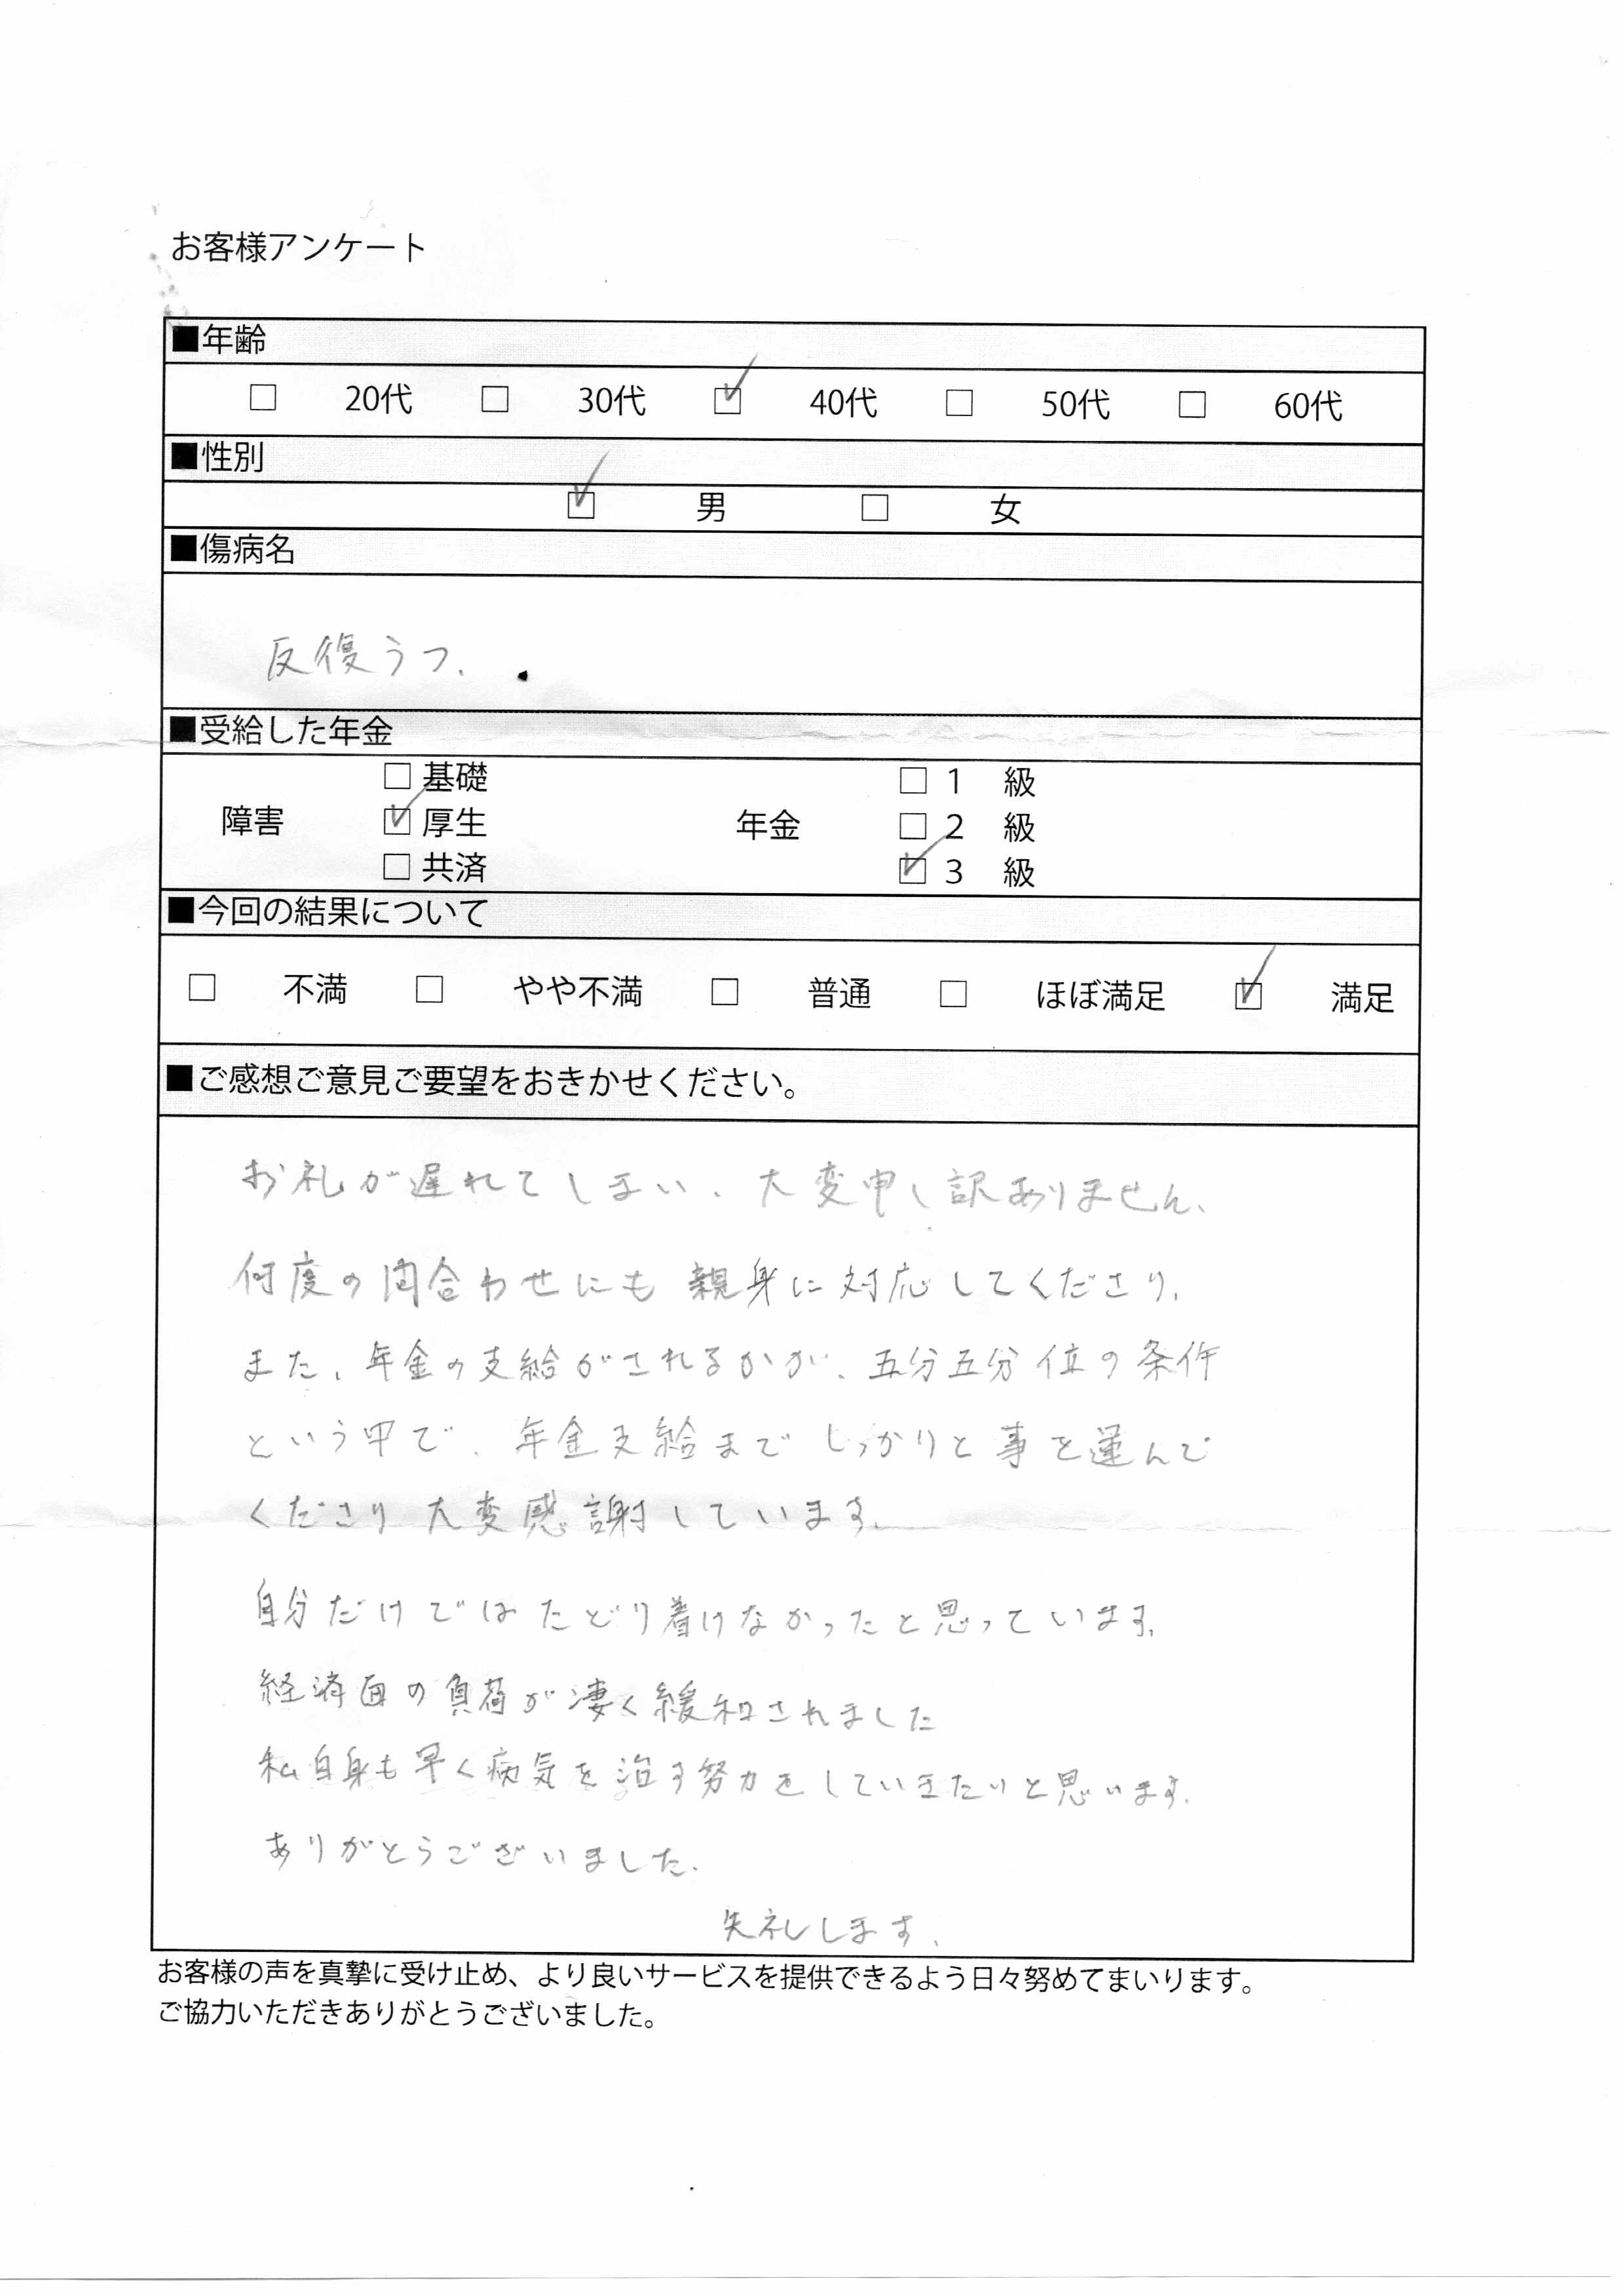 お客様アンケート
■年齢
□ 20代 □ 30代 ☑ 40代 □ 50代 □ 60代
■性別
☑ 男 □ 女
■傷病名
反復うつ、
■受給した年金
□ 基礎 □ 1 級
障害 ☑ 厚生 年金 □ 2 級
□ 共済 ☑ 3 級
■今回の結果について
□ 不満 □ やや不満 □ 普通 □ ほぼ満足 ☑ 満足
■ご感想ご意見ご要望をおきかせください。
お礼が遅れてしまい、大変申し訳ありません、
何度の問合わせにも親身に対応してくださり、
また、年金の支給がされるかが、五分五分位の条件
という中で、年金支給までしっかりと事を運んで
くださり大変感謝しています。
自分だけではたどり着けなかったと思っています。
経済面の負荷が凄く緩和されました
私自身も早く病気を治す努力をしていきたいと思います。
ありがとうございました。
失礼します。
お客様の声を真摯に受け止め、より良いサービスを提供できるよう日々努めてまいります。
ご協力いただきありがとうございました。